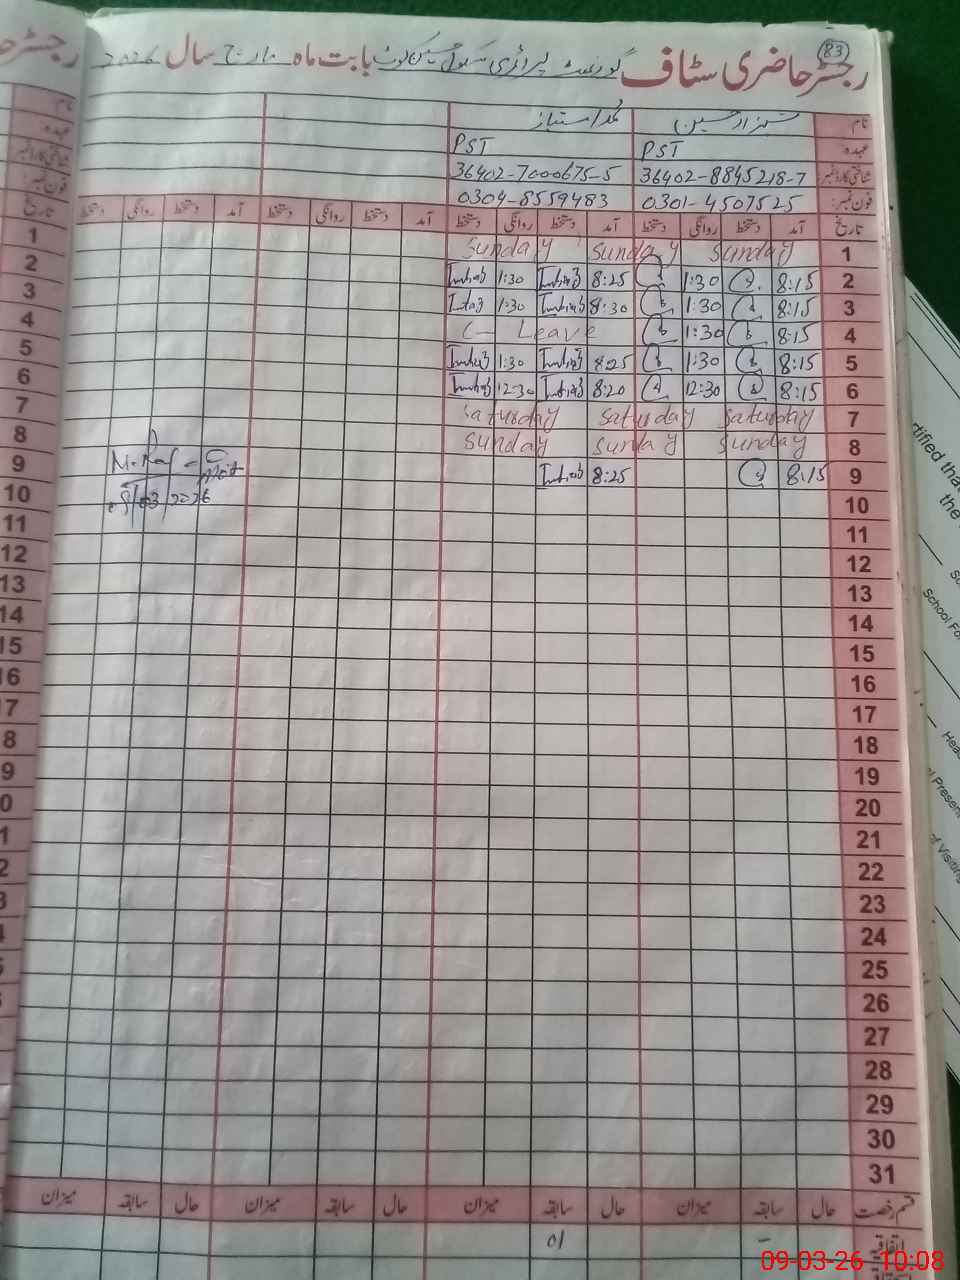 83
رجسٹر حاضری سٹاف گورنمنٹ پرائمری سکول بابت ماہ مارچ سال 2026
نام شہزاد حسین محمد امتیاز
عہدہ PST PST
شناختی کارڈ نمبر 36402-8845218-7 36402-7000675-5
فون نمبر: 0301-4507525 0304-8559483
تاریخ آمد دستخط روانگی دستخط آمد دستخط روانگی دستخط آمد دستخط روانگی دستخط آمد دستخط روانگی دستخط
1 Sunday Sunday Sunday
2 8:15 1:30 8:25 Imtiaz 1:30 Imtiaz
3 8:15 1:30 8:30 Imtiaz 1:30 Imtiaz
4 8:15 1:30 Leave
5 8:15 1:30 8:25 Imtiaz 1:30 Imtiaz
6 8:15 12:30 8:20 Imtiaz 12:30 Imtiaz
7 Saturday Saturday Saturday
8 Sunday Sunday Sunday
9 8:15 8:25 Imtiaz
10
11
12
13
14
15
16
17
18
19
20
21
22
23
24
25
26
27
28
29
30
31
قسم رخصت حال سابقہ میزان حال سابقہ میزان حال سابقہ میزان حال سابقہ میزان
اتفاقیہ - 01
09-03-26 10:08
rtified that
the
School Fo
Hea
Presen
of Visiting